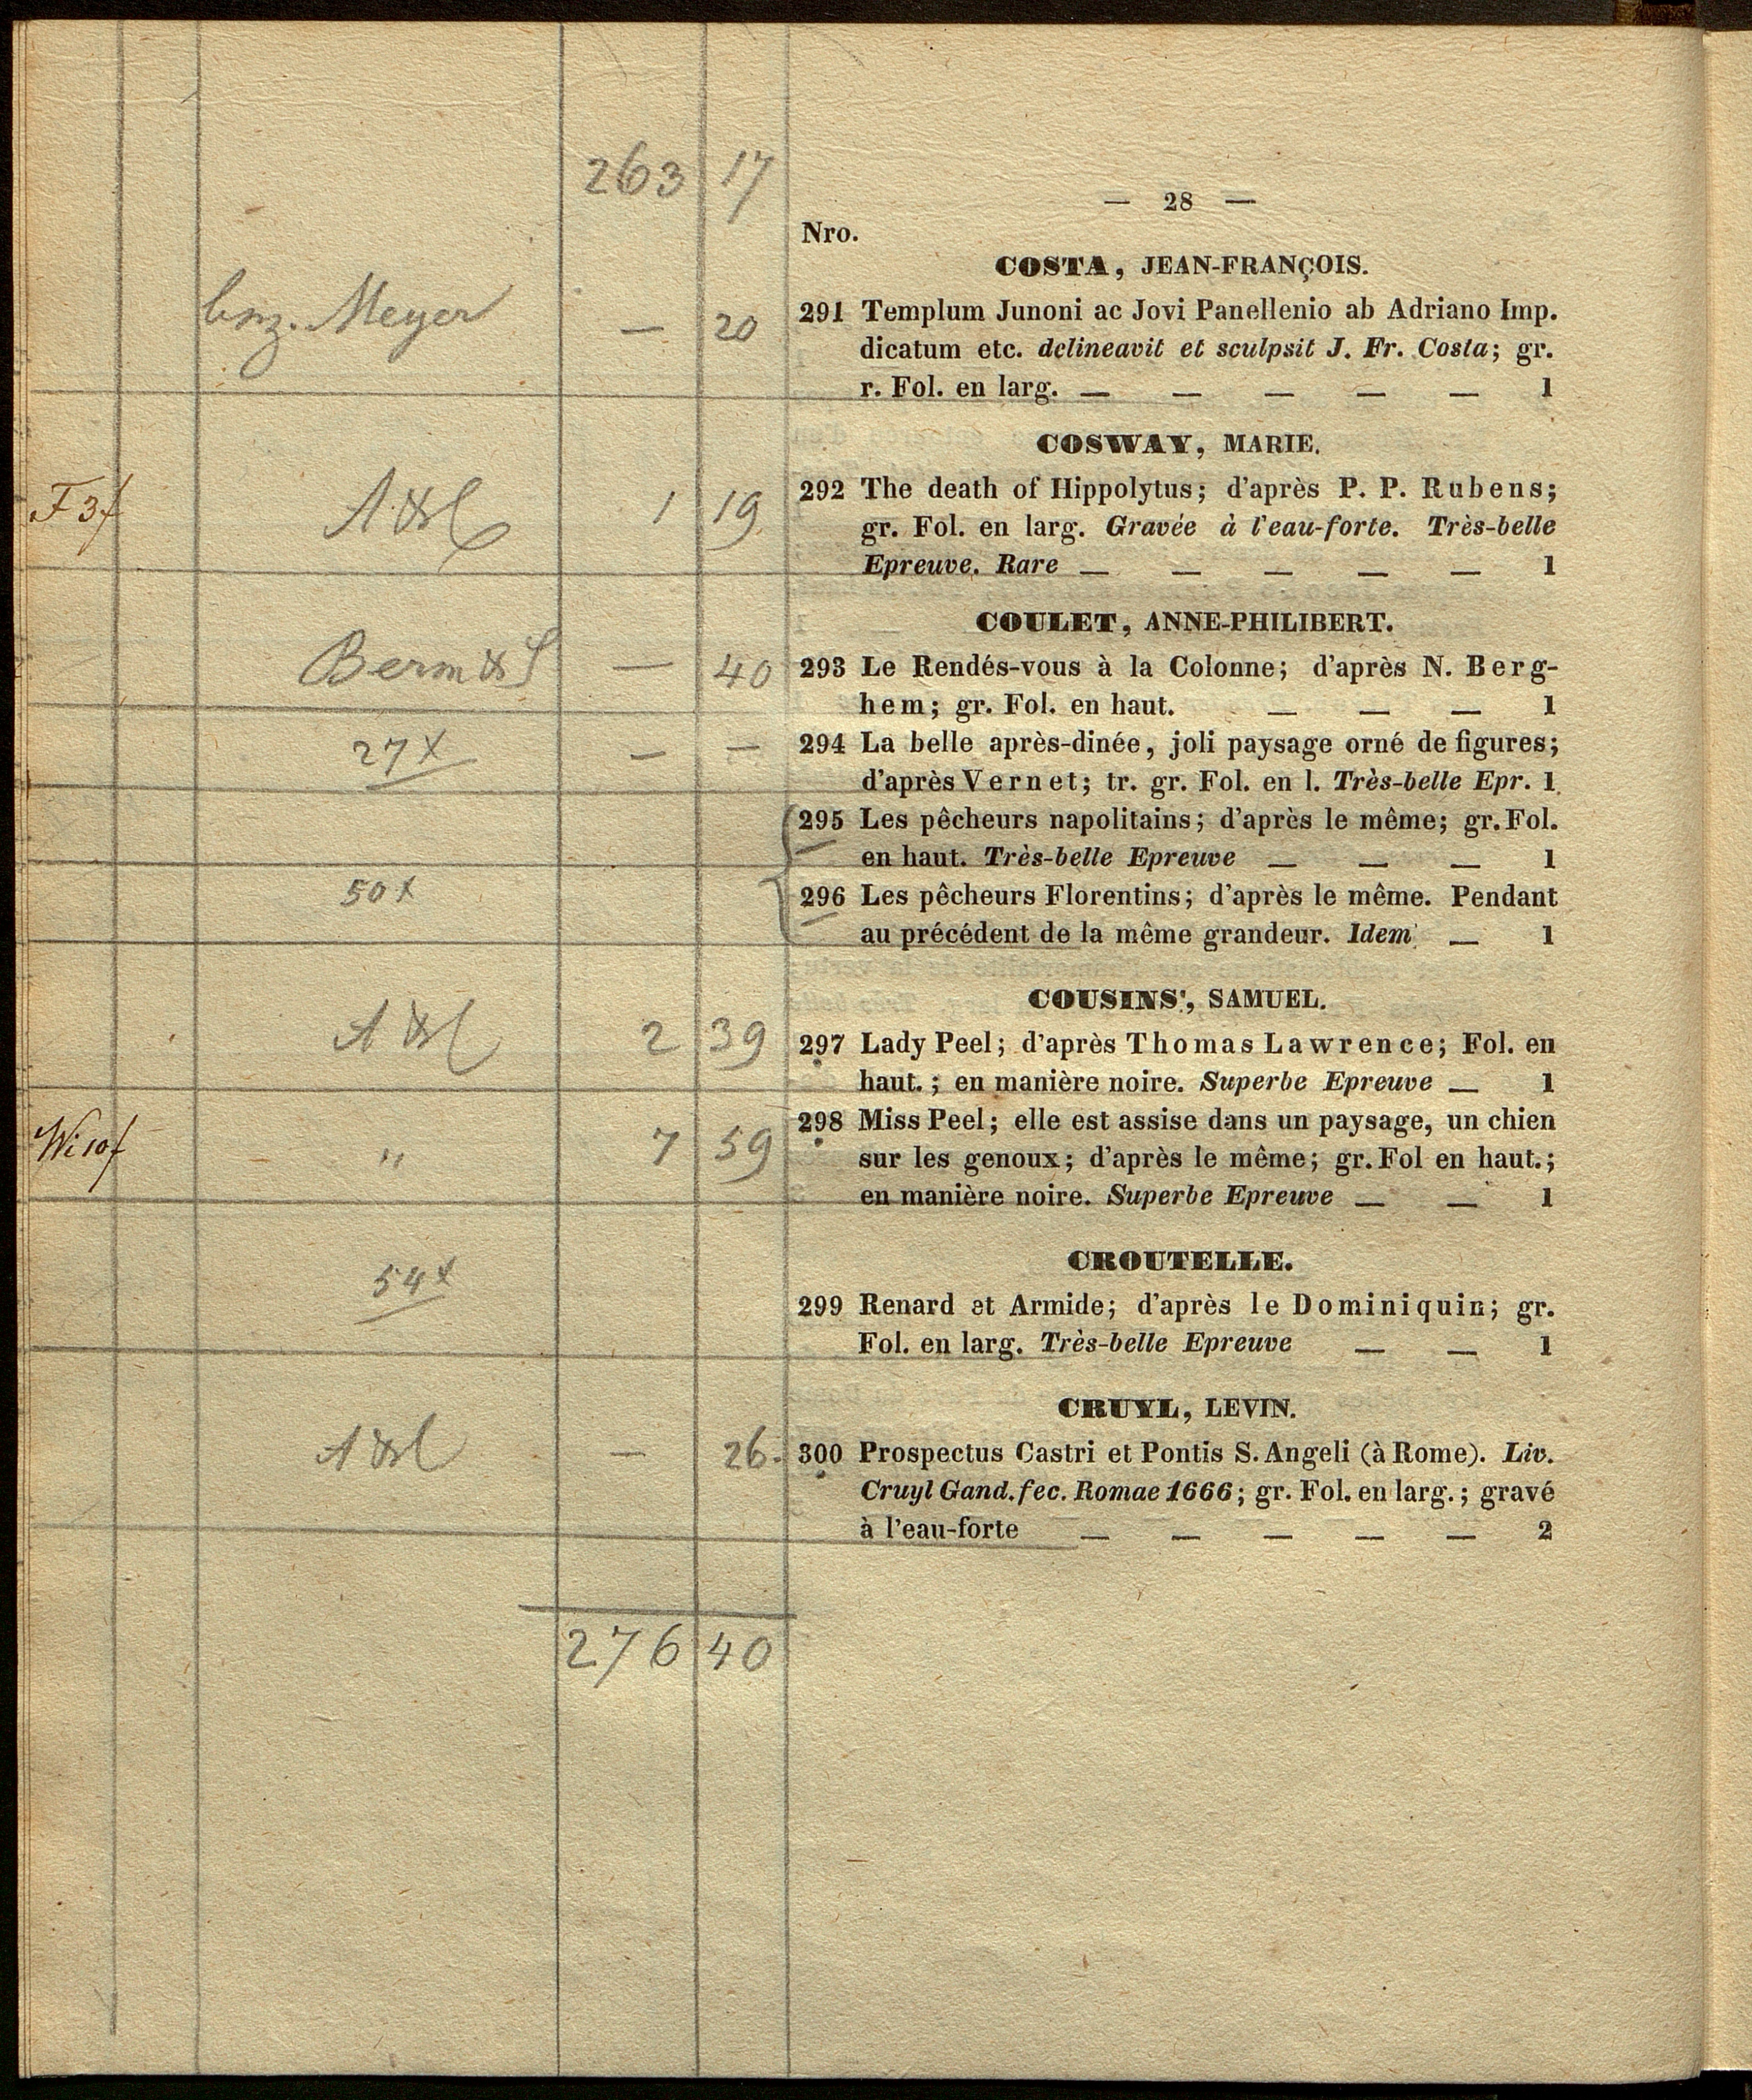 263 17
— 28 —
Nro.
COSTA, JEAN-FRANÇOIS.
Meyer — 20
291 Templum Junoni ac Jovi Panellenio ab Adriano Imp.
dicatum etc. delineavit et sculpsit J. Fr. Costa; gr.
r. Fol. en larg. — — — — — 1
COSWAY, MARIE.
F 3f 1 19
292 The death of Hippolytus; d'après P. P. Rubens;
gr. Fol. en larg. Gravée à l'eau-forte. Très-belle
Epreuve. Rare — — — — — 1
COULET, ANNE-PHILIBERT.
— 40
293 Le Rendés-vous à la Colonne; d'après N. Berg-
hem; gr. Fol. en haut. — — — 1
27x — —
294 La belle après-dinée, joli paysage orné de figures;
d'après Vernet; tr. gr. Fol. en l. Très-belle Epr. 1
295 Les pêcheurs napolitains; d'après le même; gr. Fol.
en haut. Très-belle Epreuve — — — 1
50x
296 Les pêcheurs Florentins; d'après le même. Pendant
au précédent de la même grandeur. Idem — 1
COUSINS, SAMUEL.
2 39
297 Lady Peel; d'après Thomas Lawrence; Fol. en
haut.; en manière noire. Superbe Epreuve — 1
Wi 10f " 7 59
298 Miss Peel; elle est assise dans un paysage, un chien
sur les genoux; d'après le même; gr. Fol en haut.;
en manière noire. Superbe Epreuve — — 1
CROUTELLE.
54x
299 Renard et Armide; d'après le Dominiquin; gr.
Fol. en larg. Très-belle Epreuve — — 1
CRUYL, LEVIN.
— 26.
300 Prospectus Castri et Pontis S. Angeli (à Rome). Liv.
Cruyl Gand. fec. Romae 1666; gr. Fol. en larg.; gravé
à l'eau-forte — — — — — 2
276 40